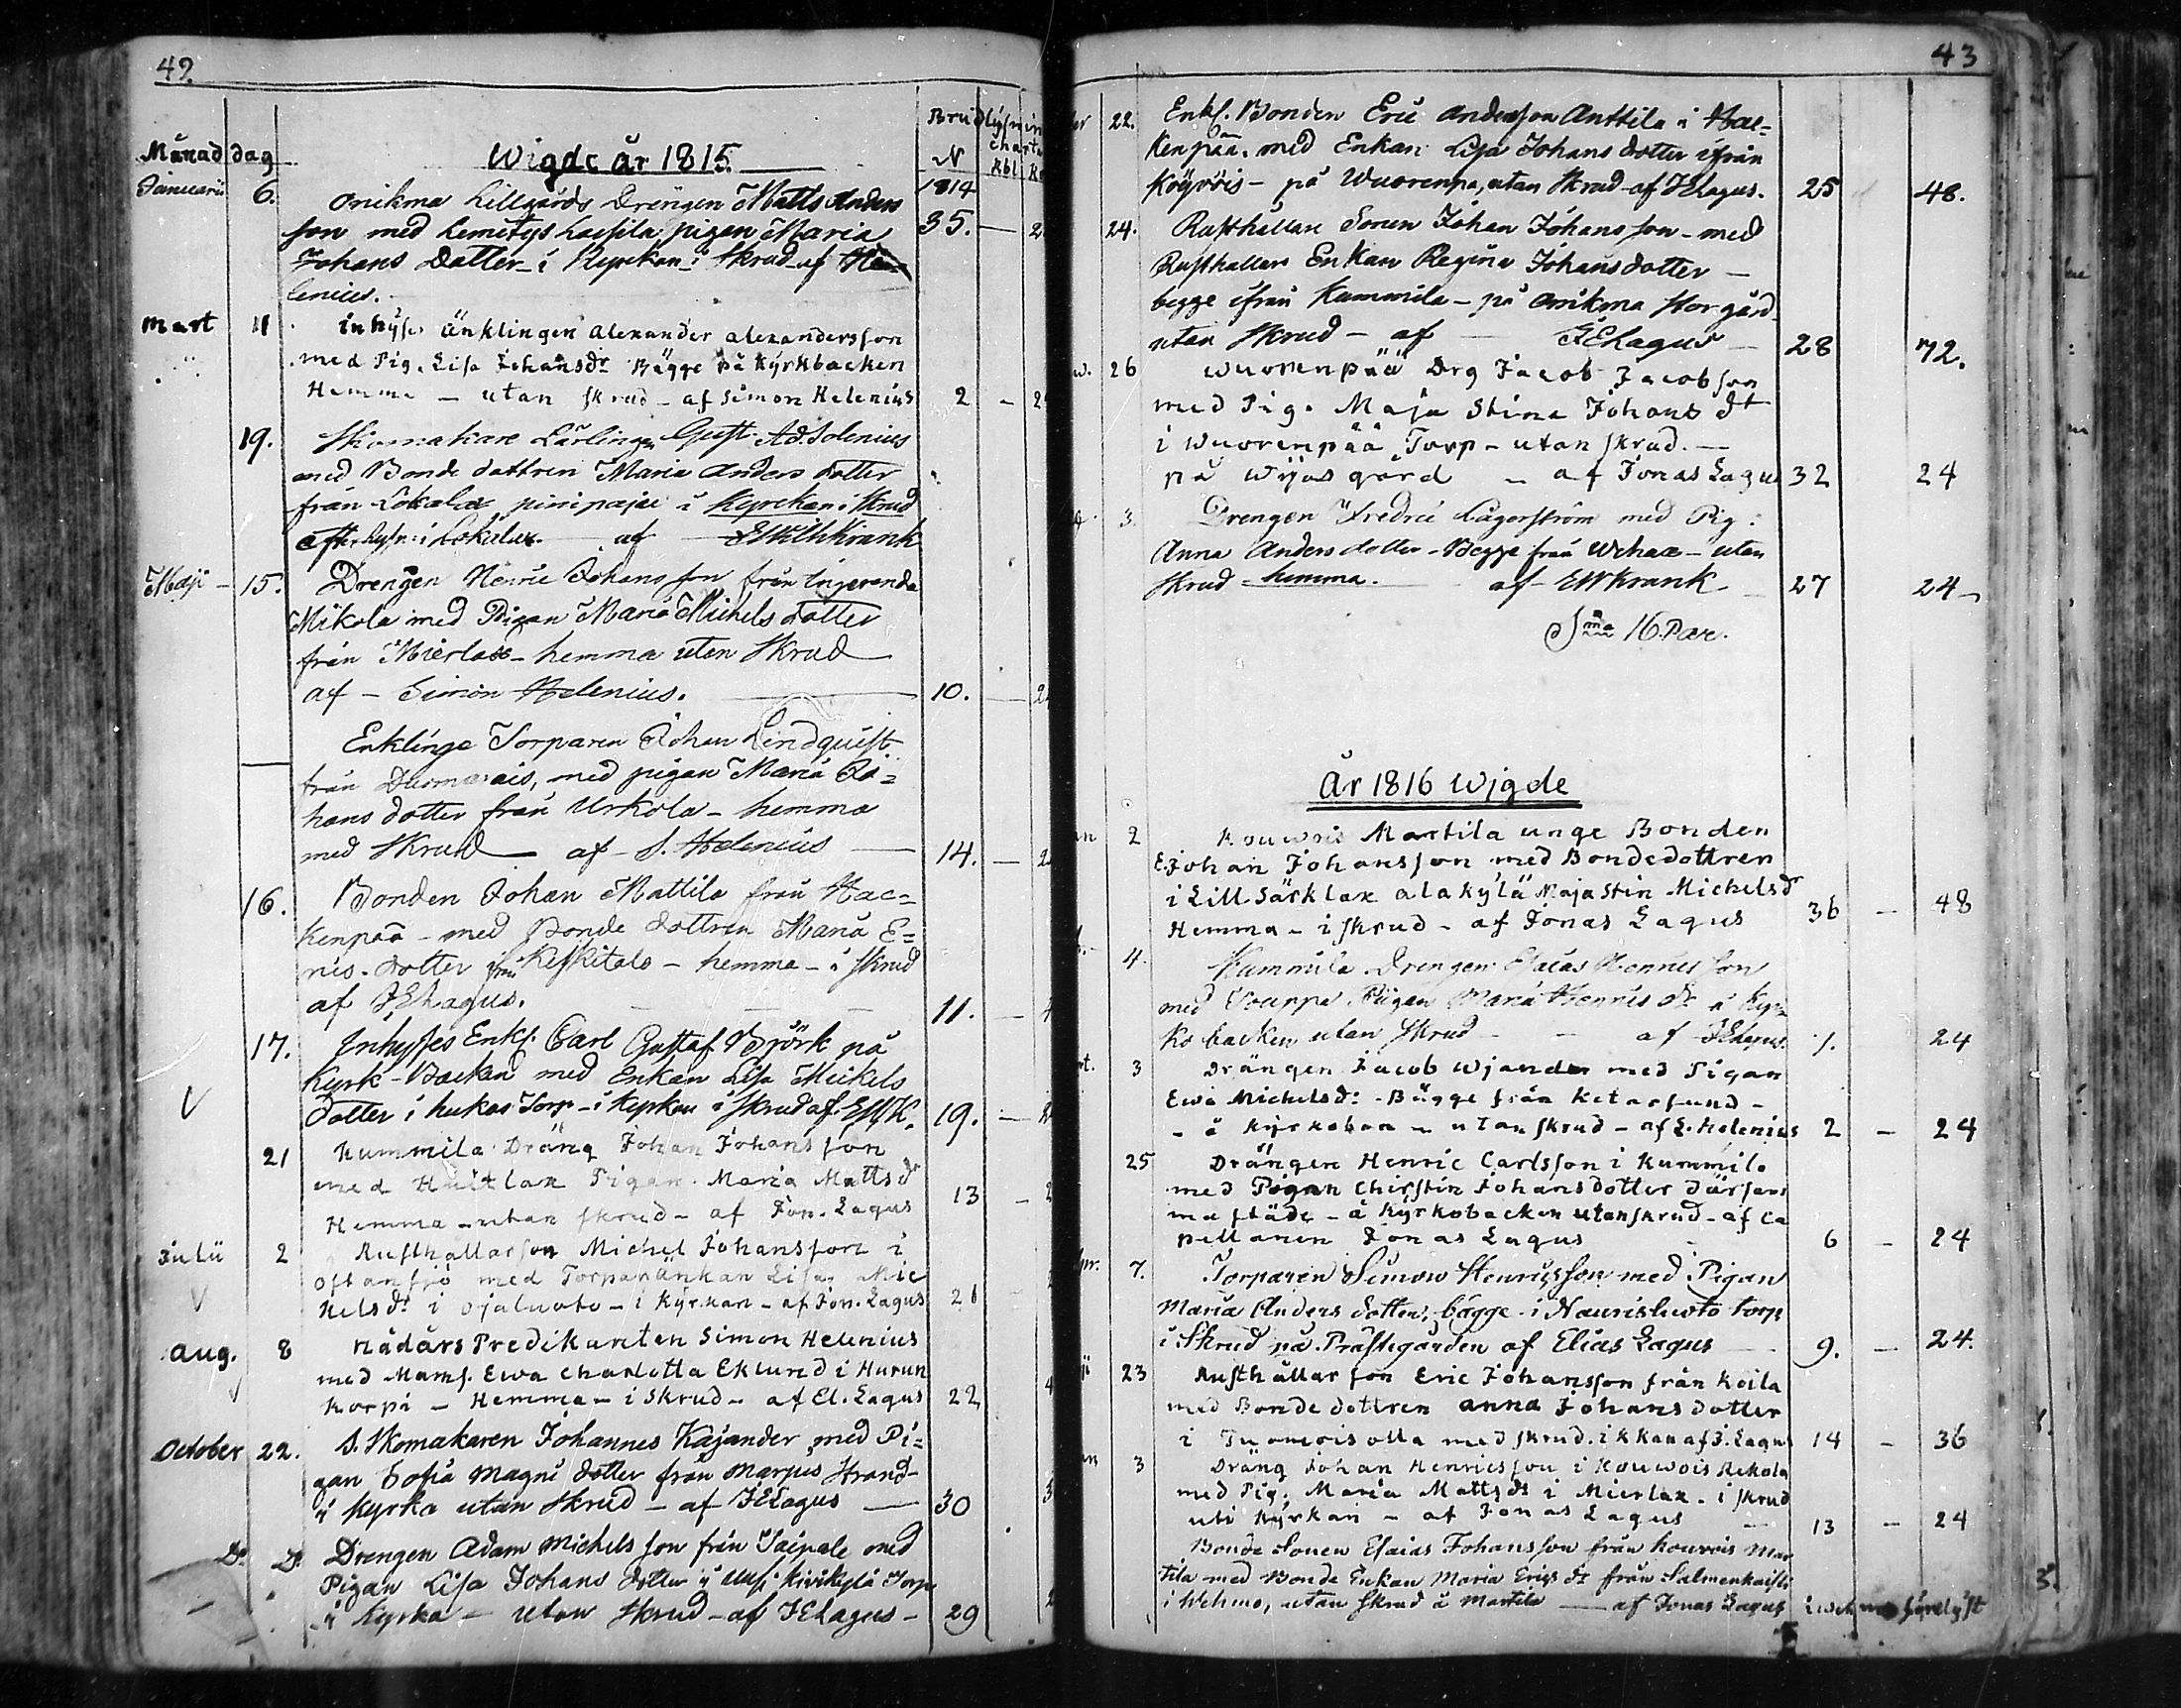 42
Månad dag
Wigde år 1815
Brudlysnin
N
charta
Rbl
Januarii 6. Onikma Lillgårds Drengen Matts Anders
1814
son med Lemetys Lassila pigan Maria 35.
Johans Dotter i Kyrckan i Skrud af He
lenius.
Mart 11 Inhyses Änklingen Alexander Alexandersson
med Pig. Lisa Johansdr Bägge på Kyrkbacken
Hemma – utan skrud – af Simon Helenius 2
19. Skomakare Lärlingen Gust. Ad. Solenius
med Bonde dottren Maria Anders dotter
från Lokalax pinipaju i Kyrckan i Skrud
efter lysn: i Lokalax af EWilhKrank
Maji 15. Drengen Henric Johansson från
Mikola med Pigan Maria Michels dotter
från Mierlax – hemma utan Skrud
af – Simon Helenius. 10.
Enklinge Torparen Johan Lindquist
från, med pigan Maria Jo=
hans dotter från Urkola – hemma
med Skrud af – S. Helenius 14.
16. Bonden Johan Mattila från Hac=
kenpää – med Bonde dottren Maria E=
rics. dotter från Keskitalo – hemma – i skrud
af JELagus. 11.
17. Inhyses Enkl. Carl Gustaf Björk på
Kyrk-Backen med Enkan Lisa Mickels
dotter i hukas Torp – i kyrkan i skrud af EWK. 19.
21 Kummila Dräng Johan Johansson
med Huitlax Pigan. Maria Mattsdr
Hemma – utan skrud – af Jon. Lagus 13
Julii 2 Rusthållarson Michel Johansson i
Ostansjö med Torparänkan Lisa Mic
helsdr i Ojaluoto – i Kyrkan – af Jon. Lagus 21
Aug. 8 Nådårs Predikanten Simon Helenius
med Mams. Ewa Charlotta Eklund i Hurun
korpi – Hemma – i Skrud – af El. Lagus 22
October 22. S. Skomakaren Johannes Kajander med Pi=
gan Sofia Magni dotter från Marjus Strand
i kyrka utan Skrud – af JELagus 30
Do Do Drengen Adam Michelsson från Saipale med
Pigan Lisa Johans dotter i Uusi kivikylä Torp
i kyrka – utan Skrud – af JELagus – 29
43
22. Enkl. Bonden Eric Andersson Anttila i Hac=
kenpää. med Enkan Lisa Johans dotter ifrån
Köyvöis – på Wuorenpä, utan Skrud – af JELagus. 25 48.
24. Rusthållare Sonen Johan Johansson – med
Rusthållars Enkan Regina Johansdotter –
begge ifrån Kummila – på Onikma Storgård
utan Skrud – af JELagus 28 72.
26 Wuorenpää Drg Jacob Jacobson
med Pig. Maja Stina Johansdr
i Wuorenpää Torp – utan skrud. –
på Wijas gård – af Jonas Lagus 32 24
3. Drengen Fredric Lagerström med Pig:
Anna Anders dotter – Begge från Wehax – utan
Skrud hemma. af EWKrank 27 24
Sma 16. Par.
År 1816 Wigde
2 Kouwois Martila unge Bonden
E. Johan Johansson med Bondedottren
i Lill Särklax alakylä Maja Stin Michelsdr
Hemma – i skrud – af Jonas Lagus 36 – 48
4. Kummila Drengen Esaias Henricsson
med Pigan Maria Henricsdr å Kyr=
ko backen utan Skrud – af JELagus. 1. 24
3 Drängen Jacob Wjander med Pigan
Ewa Michelsd: Bägge från Ketarsund –
– å Kyrkoban – utan skrud – af S. Helenius 2 – 24
25 Drängen Henric Carlsson i Kummila
med Pigan Chirstin Johansdotter därsam
ma städe – å Kyrkobacken utan skrud – af Ca
pellanen Jonas Lagus 6 – 24
7. Torparen Simon Henricsson med Pigan
Maria Anders dotter, bägge i Naurisluoto torp
i Skrud på Prästegården af Elias Lagus 9. – 24.
23 Rusthållar son Eric Johansson från Koila
med Bonde dottren Anna Johans dotter
i Tuomois olla med skrud. i kkan af J. Lagus 14 – 36
3 Dräng Johan Henricsson i Kouwois Rekola
med Pig. Maria Mattsdr i Mierlax. i skrud
uti Kyrkan – af Jonas Lagus 13 – 24
Bonde Sonen Esaias Johansson från Kouvois Mar
tila med Bonde Enkan Maria Ericsdr från Salmenkaisti
i Wehmo, utan Skrud å Martila – af Jonas Lagus i Wehmo förelyst